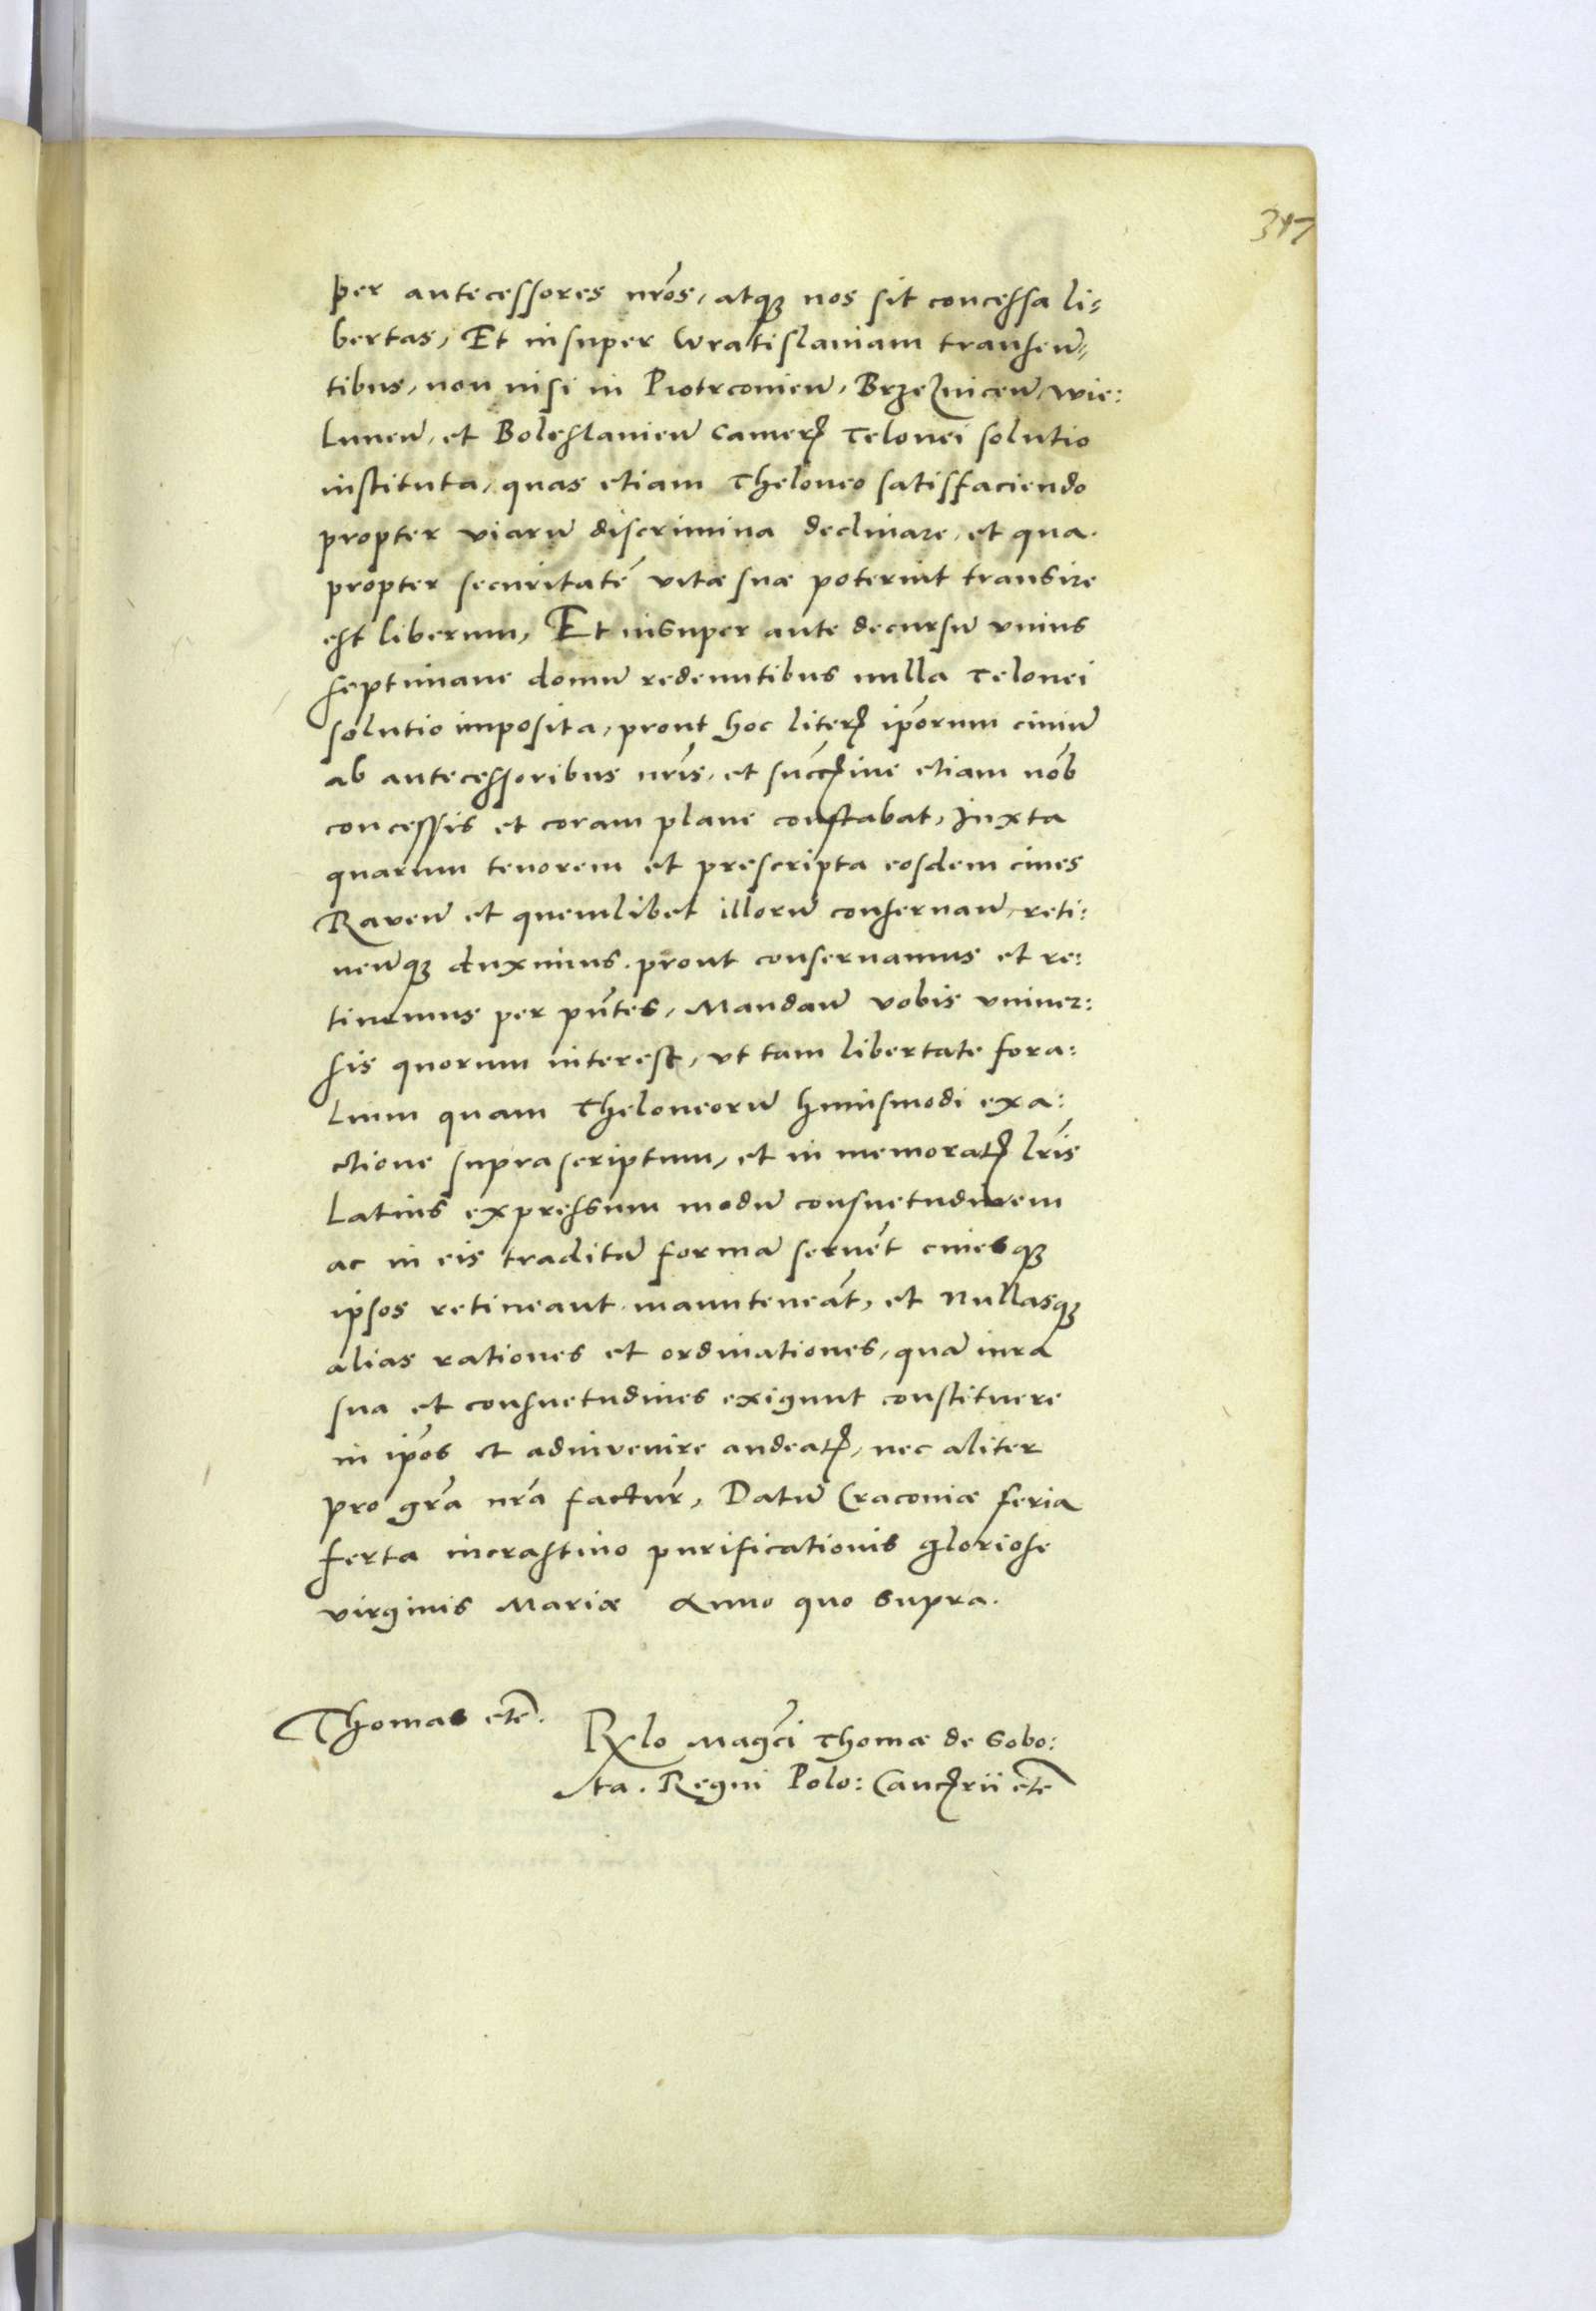 317
per antecessores nr̃os, atqꝫ nos sit concessa li⸗
bertas, Et insuper Wratislauiam transeun̄⸗
tibus, non nisi in Piotrconien̄, Brzeznicen̄, Wie:
lunen̄, et Boleslauien̄ Camerꝭ Telonei solutio
instituta, quas etiam Theloneo satisfaciendo
propter viarū discrimina declinare, et qua
propter securitatē vitæ suæ poterint transire
est liberum, Et insuper ante decursū vnius
septimane domū redeuntibus nulla Telonei
solutio imposita, prout hoc literꝭ ip̃orum ciuiū
ab antecessoribus nr̃is, et succꝭiue etiam nob̃
concessis et coram plane constabat, Juxta
quarum tenorem et prescripta eosdem ciues
Raven̄ et quemlibet illorū conseruan̄, reti:
nen̄qꝫ duximus. prout conseruamus et re:
tinemus per pñtes, Mandan̄ vobis vniuer:
sis quorum interest, vt tam libertate fora:
lium quam Theloneorū huiusmodi exa:
ctione suprascriptum, et in memoratꝭ lr̃is
Latius expressum modū consuetudinem
ac in eis traditā formā seruēt ciuesqꝫ
ipsos retineant manuteneāt, et Nullasqꝫ
alias rationes et ordinationes, quā iura
sua et consuetudines exigunt constituere
in ip̃os et adinvenire audeatꝭ, nec aliter
pro gr̃a nr̃a factur̃, Datū Cracouiæ feria
serta incrastino purificationis gloriose
virginis Mariæ Anno quo supra.
Thomas etc̃.
Rl̃o Magc̃i Thomæ de Sobo:
ta. Regni Polo: Cancꝭrii etc̃